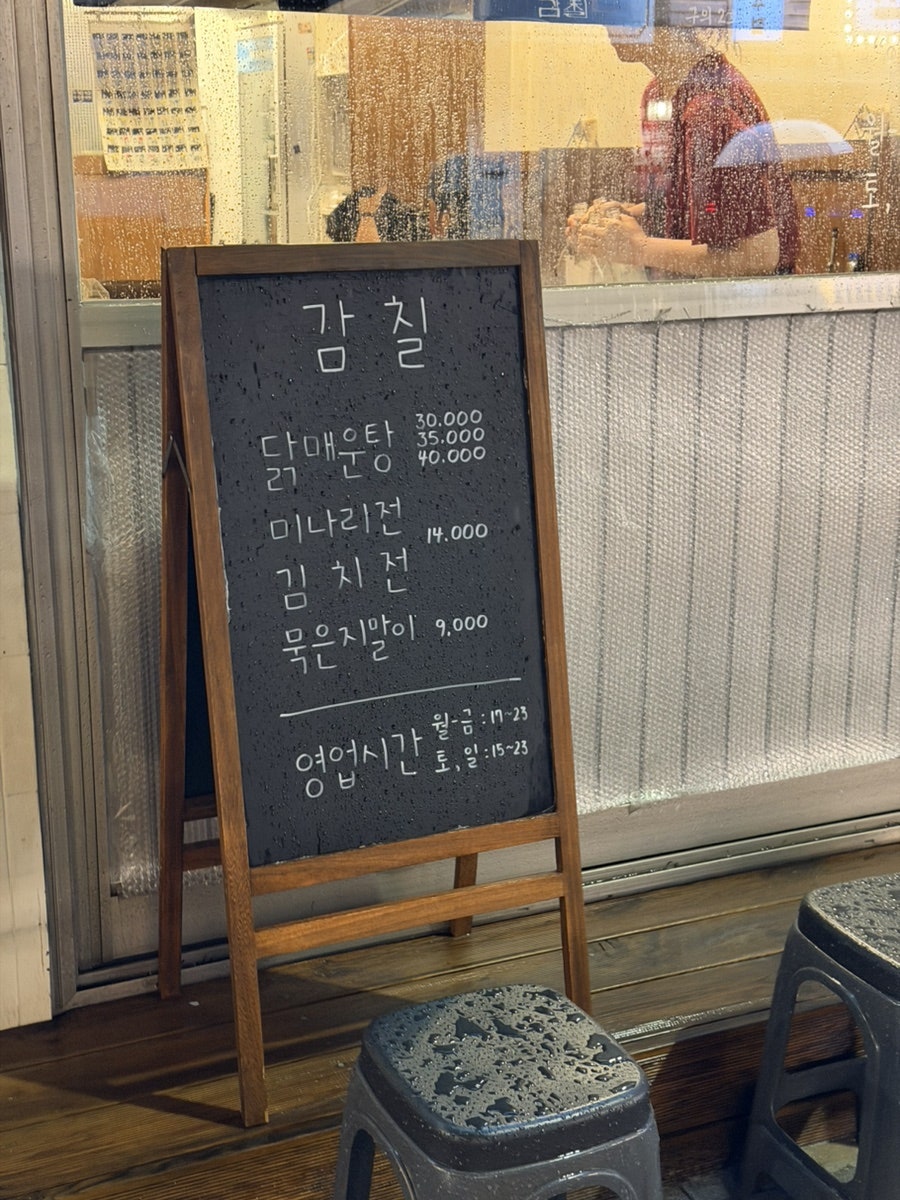 감칠
닭매운탕 30.000
35.000
40.000
미나리전
14.000
김치전
묵은지말이 9,000
영업시간 월-금 : 17~23
토,일 : 15~23